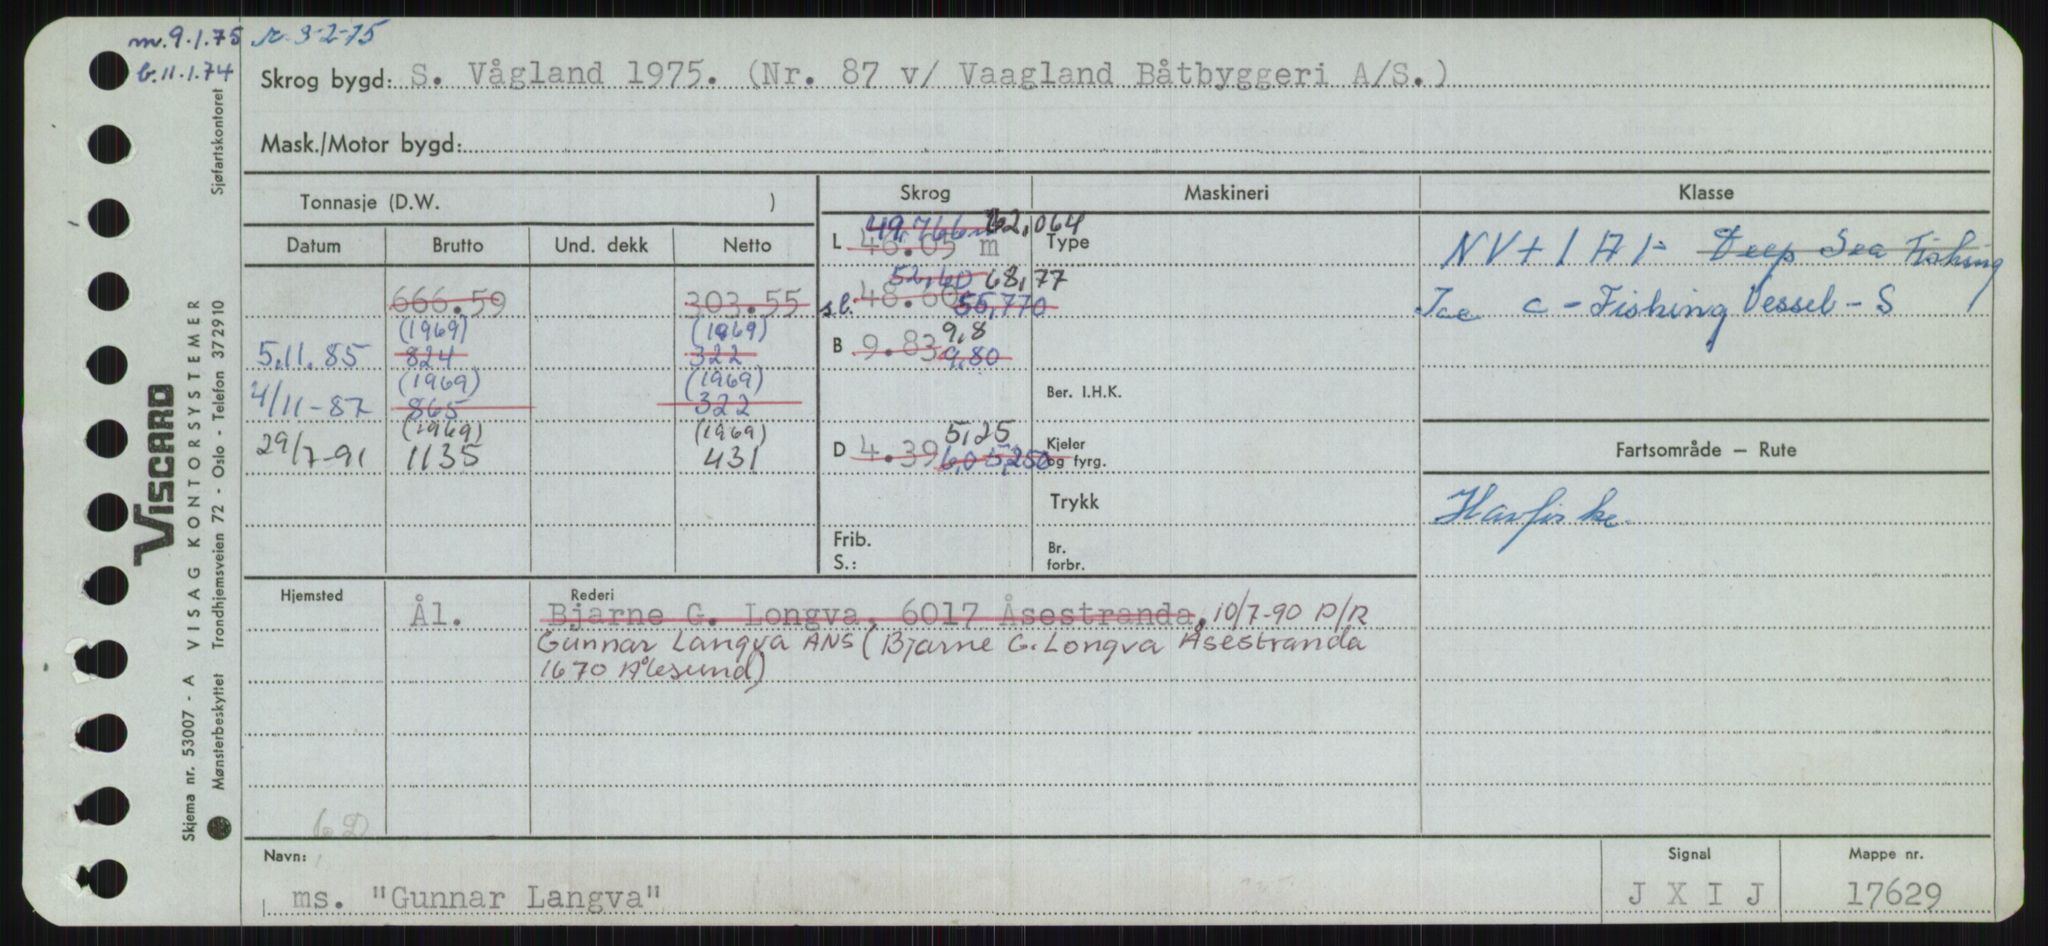 m.9.1.75 r.3-2-75
b.11.1.74
Skrog bygd: S. Vågland 1975. (Nr. 87 v/ Vaagland Båtbyggeri A/S.)
Mask./Motor bygd:
Tonnasje (D.W. )
Skrog
Maskineri
Klasse
Datum Brutto Und. dekk Netto
L 46.05 m 49,766 62,064
Type
NV + 1 A 1 - Deep Sea Fishing
666.59 303.55
52,60 68,77
s.l. 48.60 55,770
Ice C - Fishing Vessel - S
(1969) (1969)
5.11.85 824 322
B 9.83 9,8
9,80
(1969) (1969)
4/11-87 865 322
Ber. I.H.K.
(1969) (1969)
29/7-91 1135 431
D 4.39 5,25
6,0 5,250
Kjeler
og fyrg.
Fartsområde — Rute
Trykk
Havfiske
Frib.
S.:
Br.
forbr.
Hjemsted
Rederi
Ål. Bjarne G. Longva, 6017 Åsestranda. 10/7-90 P/R
Gunnar Langva ANS (Bjarne G. Longva Åsestranda
1670 Ålesund)
62
Navn:
Signal
Mappe nr.
ms. "Gunnar Langva"
J X I J
17629
Sjøfartskontoret
VISCARD
Skjema nr. 53007 - A VISAG KONTORSYSTEMER
Mønsterbeskyttet Trondhjemsveien 72 - Oslo - Telefon 372910